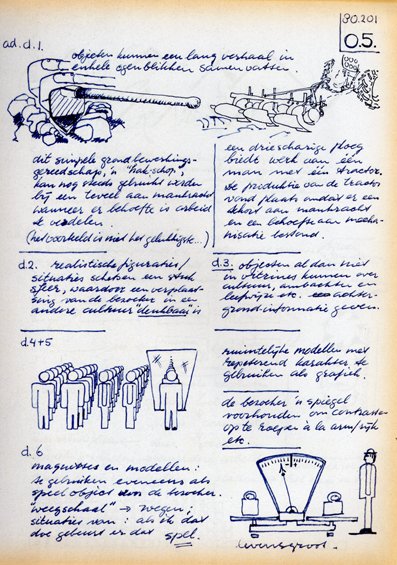 90.201
0.5.
ad. d. 1.
objecten kunnen een lang verhaal in
enkele ogenblikken samenvatten.
dit simpele grondbewerkings-
gereedschap, 'n "hak-schop",
kan nog steeds gebruikt worden
bij een teveel aan mankracht
wanneer er behoefte is arbeid
te verdelen.
(het voorbeeld is niet het gelukkigste...)
een driescharige ploeg
biedt werk aan één
man met één tractor.
de produktie van de tractor
vond plaats omdat er een
tekort aan mankracht
en een behoefte aan mecha-
nisatie bestond.
d.2. realistische figuraties/
situaties schetsen een stuk
sfeer, waardoor een verplaat-
sing van de bezoeker in een
andere cultuur denkbaar is
d.3. objecten al dan niet
in vitrines kunnen over
cultuur, ambachten en
leefwijze etc. achter-
grond-informatie geven.
d.4+5
ruimtelijke modellen met
repeterend karakter te
gebruiken als grafiek
de bezoeker 'n spiegel
voorhouden om contrasten
op te roepen à la arm/rijk
etc.
d.6
maquettes en modellen:
te gebruiken eveneens als
speel object door de bezoeker.
"weegschaal" → wegen;
situaties van: als ik dat
doe gebeurt er dat spel.
levensgroot.